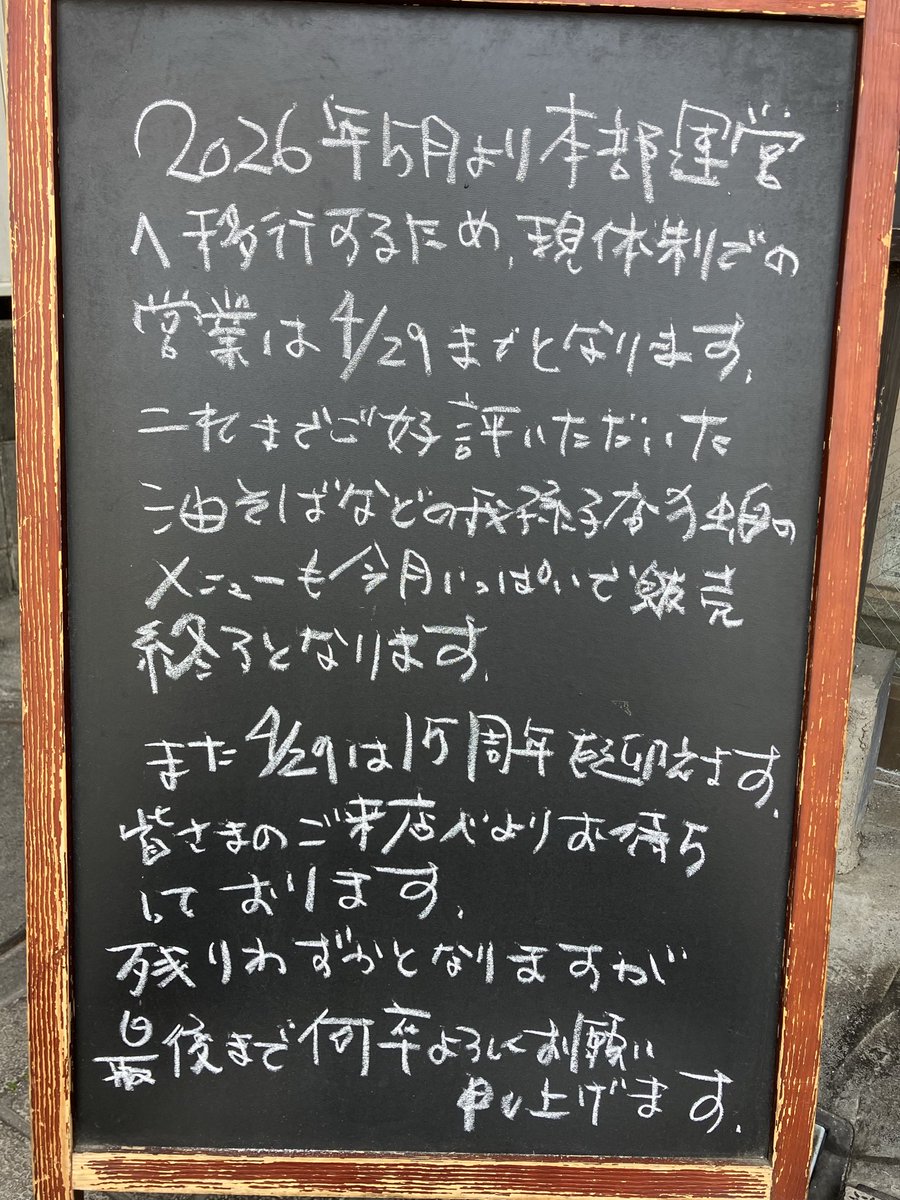 2026年5月より本部運営
へ移行するため、現体制での
営業は4/29までとなります。
これまでご好評いただいた
油そばなどの我孫子店独自の
メニューも今月いっぱいで販売
終了となります。
また4/29は15周年を迎えます。
皆さまのご来店心よりお待ち
しております。
残りわずかとなりますが
最後まで何卒よろしくお願い
申し上げます。